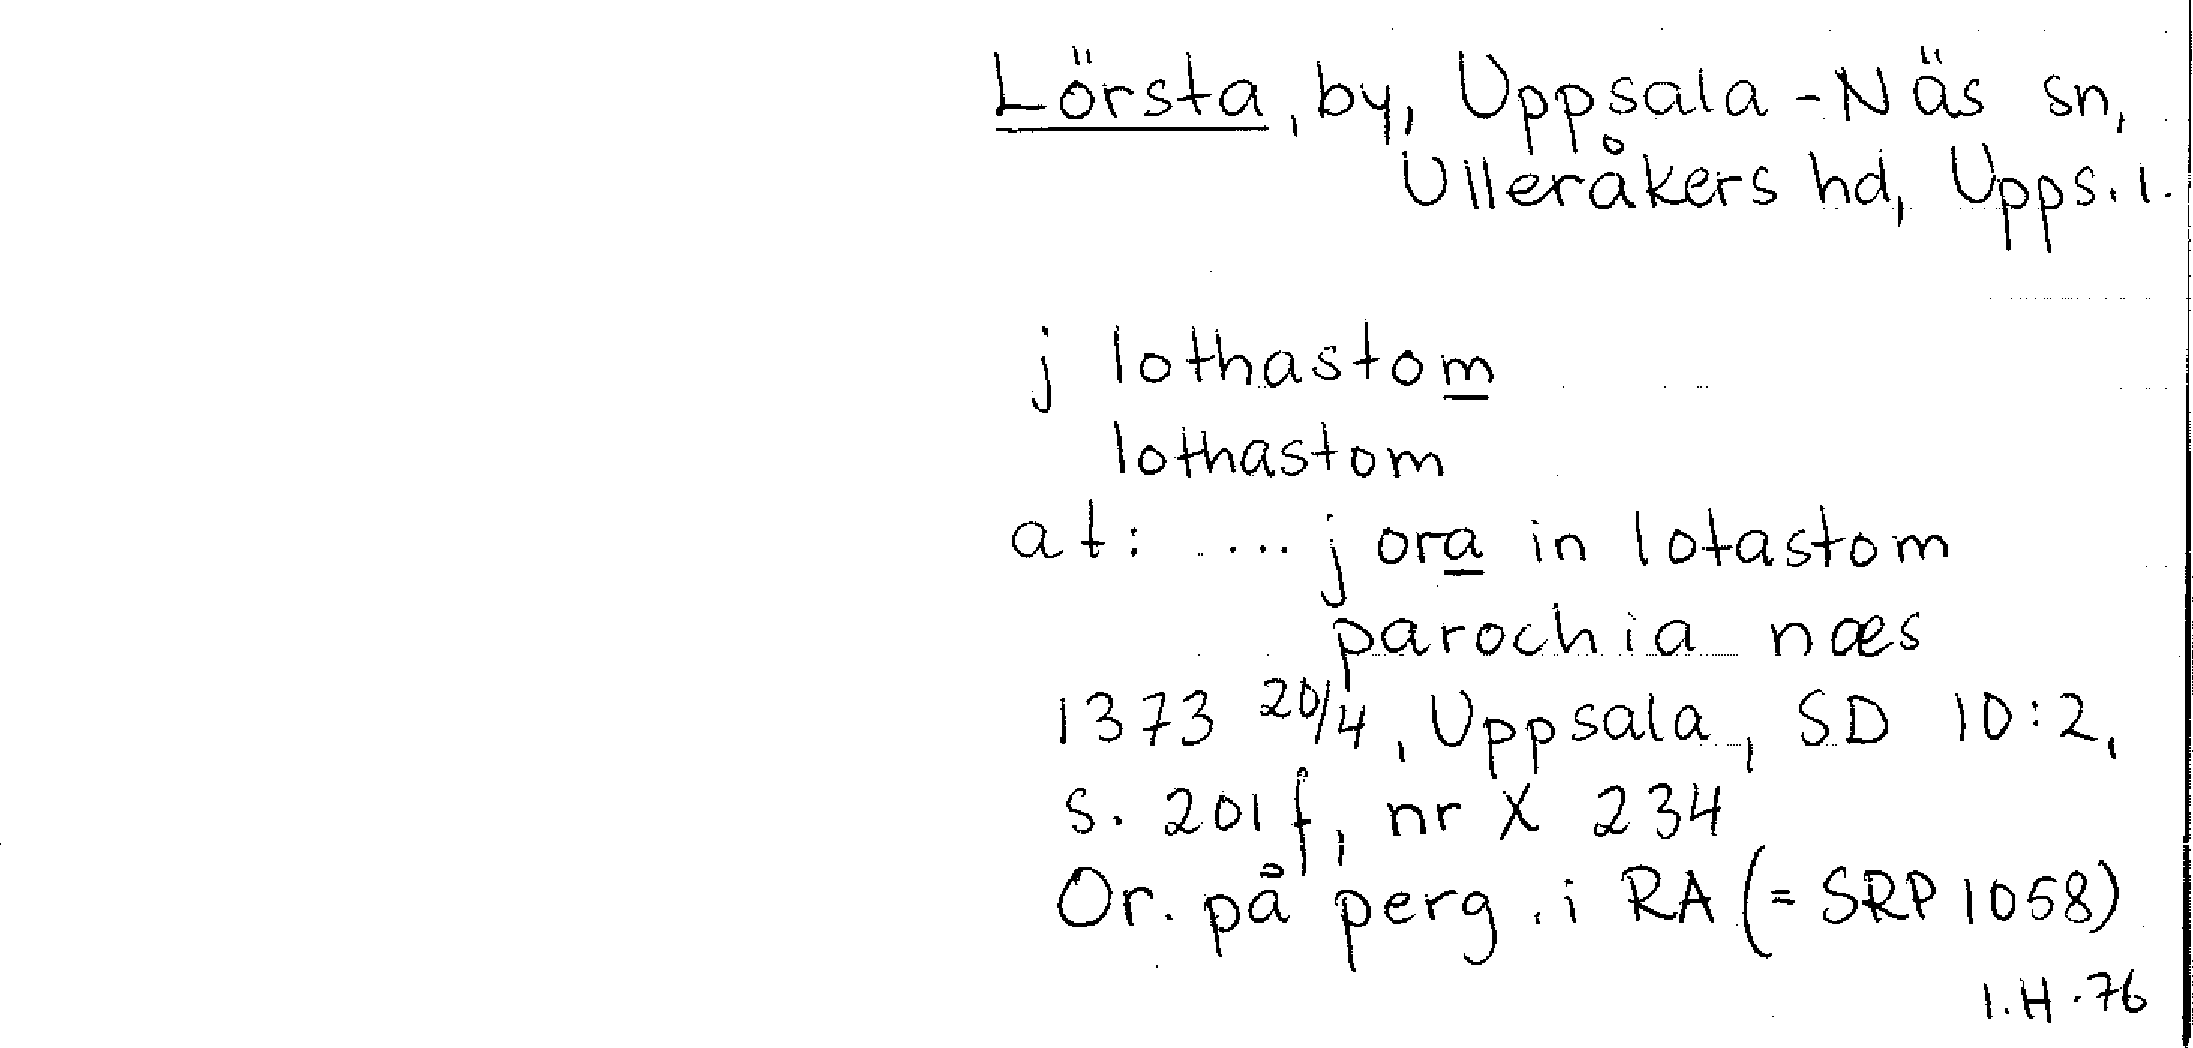 Lörsta, by, Uppsala-Näs sn,
Ulleråkers hd, Upps. l.
j lothastom
lothastom
at: .... j ora in lotastom
parochia næs
1373 20/4, Uppsala, SD 10:2,
s. 201 f, nr X 234
Or. på perg. i RA (= SRP 1058)
I.H.76